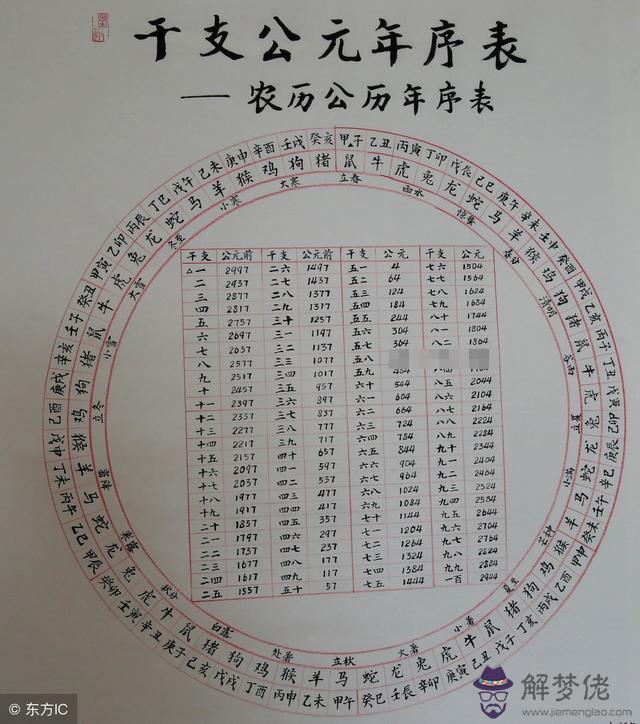 干支公元年序表
——农历公历年序表
甲子 乙丑 丙寅 丁卯 戊辰 己巳 庚午 辛未 壬申 癸酉 甲戌 乙亥 丙子 丁丑 戊寅 己卯 庚辰 辛巳 壬午 癸未 甲申 乙酉 丙戌 丁亥 戊子 己丑 庚寅 辛卯 壬辰 癸巳 甲午 乙未 丙申 丁酉 戊戌 己亥 庚子 辛丑 壬寅 癸卯 甲辰 乙巳 丙午 丁未 戊申 己酉 庚戌 辛亥 壬子 癸丑 甲寅 乙卯 丙辰 丁巳 戊午 己未 庚申 辛酉 壬戌 癸亥
鼠 牛 虎 兔 龙 蛇 马 羊 猴 鸡 狗 猪 鼠 牛 虎 兔 龙 蛇 马 羊 猴 鸡 狗 猪 鼠 牛 虎 兔 龙 蛇 马 羊 猴 鸡 狗 猪 鼠 牛 虎 兔 龙 蛇 马 羊 猴 鸡 狗 猪 鼠 牛 虎 兔 龙 蛇 马 羊 猴 鸡 狗 猪
立春 雨水 惊蛰 春分 清明 谷雨 立夏 小满 芒种 夏至 小暑 大暑 立秋 处暑 白露 秋分 寒露 霜降 立冬 小雪 大雪 冬至 小寒 大寒
干支 公元前 干支 公元前 干支 公元 干支 公元
△一 2997 二六 1497 五一 4 七六 1504
二 2937 二七 1437 五二 64 七七 1564
三 2877 二八 1377 五三 124 七八 1624
四 2817 二九 1317 五四 184 七九 1684
五 2757 三十 1257 五五 244 八十 1744
六 2697 三一 1197 五六 304 八一 1804
七 2637 三二 1137 五七 364 八二 1864
八 2577 三三 1077 五八
九 2517 三四 1017 五九 484
十 2457 三五 957 六十 544 八五 2044
十一 2397 三六 897 六一 604 八六 2104
十二 2337 三七 837 六二 664 八七 2164
十三 2277 三八 777 六三 724 八八 2224
十四 2217 三九 717 六四 784 八九 2284
十五 2157 四十 657 六五 844 九十 2344
十六 2097 四一 597 六六 904 九一 2404
十七 2037 四二 537 六七 964 九二 2464
十八 1977 四三 477 六八 1024 九三 2524
十九 1917 四四 417 六九 1084 九四 2584
二十 1857 四五 357 七十 1144 九五 2644
二一 1797 四六 297 七一 1204 九六 2704
二二 1737 四七 237 七二 1264 九七 2764
二三 1677 四八 177 七三 1324 九八 2824
二四 1617 四九 117 七四 1384 九九 2884
二五 1557 五十 57 七五 1444 一百 2944
解梦佬
www.jiemenglao.com
© 东方IC